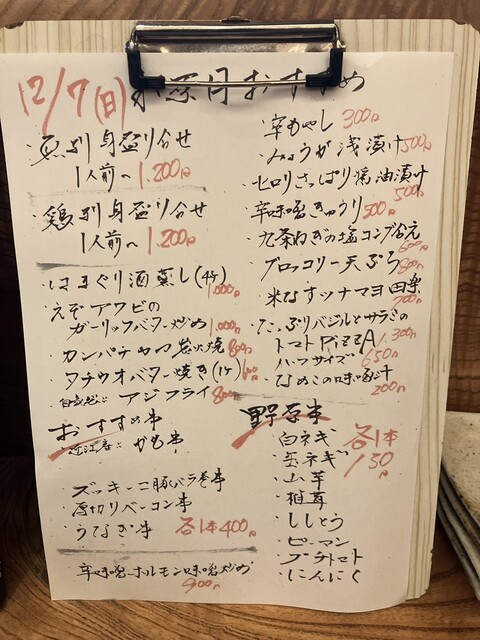 12/7(日) おすすめ
魚刺身盛り合せ
1人前〜 1.200円
鶏刺身盛り合せ
1人前〜 1.200円
はまぐり酒蒸し(4ケ)
1.000円
えぞアワビの
ガーリックバター炒め 1.000円
カンパチカマ炭火焼 800円
タチウオバター焼き(1ケ)
アジフライ 800円
おすすめ串
かも串
ズッキーニ豚バラ巻串
厚切りベーコン串
うなぎ串 各1本400円
辛味噌ホルモン味噌炒め
900円
辛もやし 300円
みょうが浅漬け 500円
セロリさっぱり醤油漬け
500円
辛味噌きゅうり 500円
九条ねぎの塩コンブ和え
600円
ブロッコリー天ぷら 800円
米なすツナマヨ田楽
700円
たっぷりバジルとサラミの
トマトPiZZA 1.300円
ハーフサイズ 650円
なめこの味噌汁
200円
野菜串
白ネギ 各1本
玉ネギ 150円
山芋
椎茸
ししとう
ピーマン
プチトマト
にんにく